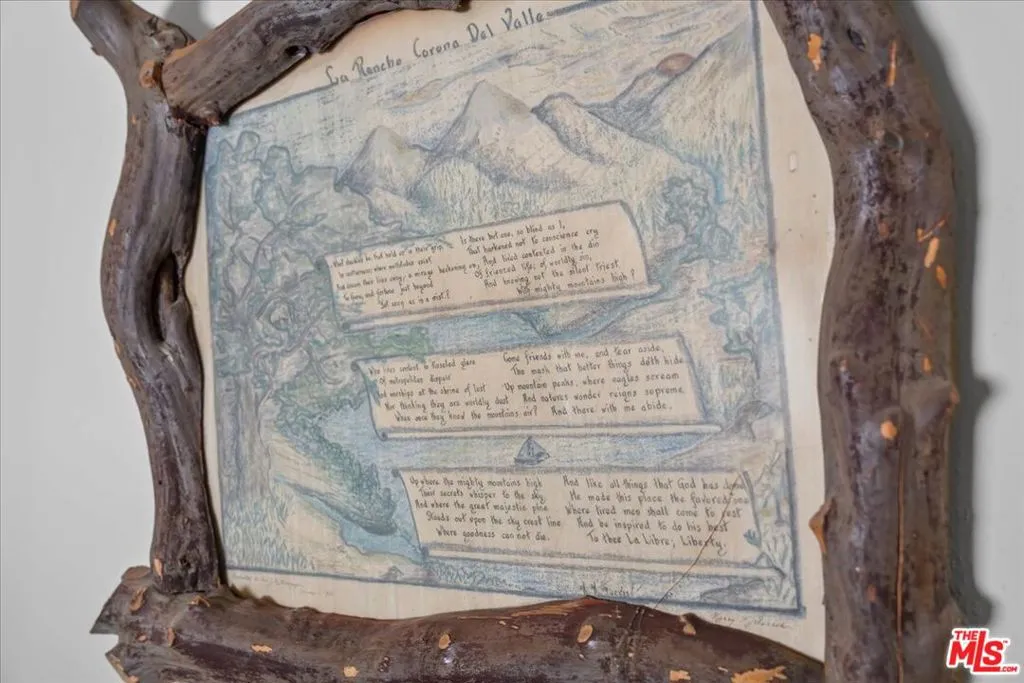 La Rancho Corona Del Valle
What should be that hold us in their grip
In containment where multitudes exist
And dream their lives away; a mirage beckoning on,
To fame, and fortune just beyond
Yet envy as in a mist?
Is there but one, so blind as I,
That harkened not to conscience cry
And lived contented in the din
Of frienzed life; of worldly sin,
And knowing not the silent tryst
With mighty mountains high?
Who lives content to tinseled glare
Of metropolitan
And worships at the shrine of lust
Nor thinking they are worldly dust
When once they know the mountains air?
Come friends with me, and tear aside,
The mask that better things doth hide
Up mountain peaks, where eagles scream
And natures wonder reigns supreme
And there with me abide.
Up where the mighty mountains high
Their secrets whisper to the sky
And where the great majestic pine
Stands out upon the sky crest line
Where goodness can not die.
And like all things that God has done
He made this place the favored one
Where tired men shall come to rest
And be inspired to do his best
To thee La Libre; Liberty.
THE
MLS
.COM